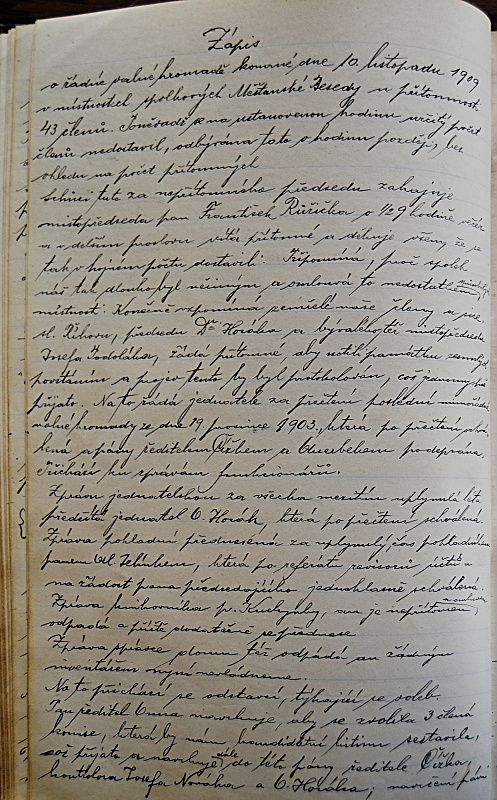 Zápis
o řádné valné hromadě konané dne 10. listopadu 1909
v místnostech spolkových Měšťanské Besedy u přítomnosti
43 členů. Poněvadž se na ustanovenou hodinu určitý počet
členů nedostavil, odbývána tato o hodinu později, bez
ohledu na počet přítomných
Schůzi tuto za nepřítomného předsedu zahajuje
místopředseda pan František Růžička o ½ 9 hodině večer
a v delším proslovu vítá přítomné a děkuje všem, že se
tak v hojném počtu dostavili. Připomíná, proč spolek
náš tak dlouho byl nečinným a omlouvá to nedostatkem
místností. Konečně vzpomíná zemřelé naše členy a
sl. Říhovu, předsedu Dra Horáka a bývalého místopředsedu
Josefa Podoláka, žádá přítomné, aby uctili památku zemřelých
povstáním a projev tento by byl protokolován, což
přijato. Na to žádá jednatele za přečtení poslední mimořádné
valné hromady ze dne 19. prosince 1903, která po přečtení
a pány ředitelem a podepsána.
Přichází ku zprávám funkcionářů.
Zprávu jednatelskou za všecka mezitím uplynulá léta
předčítá jednatel O. Horák, která po přečtení schválena.
Zpráva pokladní přednesená za uplynulý čas pokladníkem
panem která po referátu revisorů účtů a
na žádost pana předsedajícího jednohlasně schválena.
Zpráva knihovníka p. Kuchynky, an je nepřítomen,
odpadla a příště dodatečně se přednese
Zpráva správce domu též odpadá an žádným
inventářem nyní nevládneme.
Na to přichází se odstavci, týkající se voleb.
Pan ředitel navrhuje, aby se zvolila 3 členná
komise, která by nám kandidátní listinu sestavila,
což přijato a navrhuje dále do této pány ředitele
kontrolora Josefa Nováka a O. Horáka; navržení páni